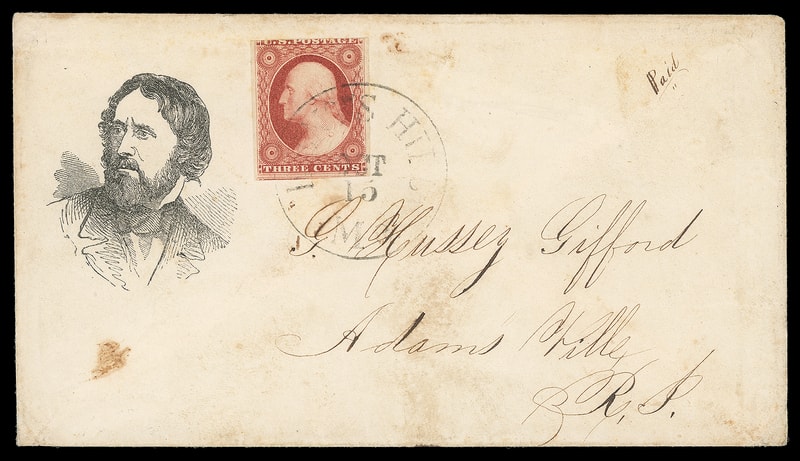 U.S. POSTAGE
THREE CENTS
Paid
S HIL
15
G Hussey Gifford
Adams Ville
R. I.